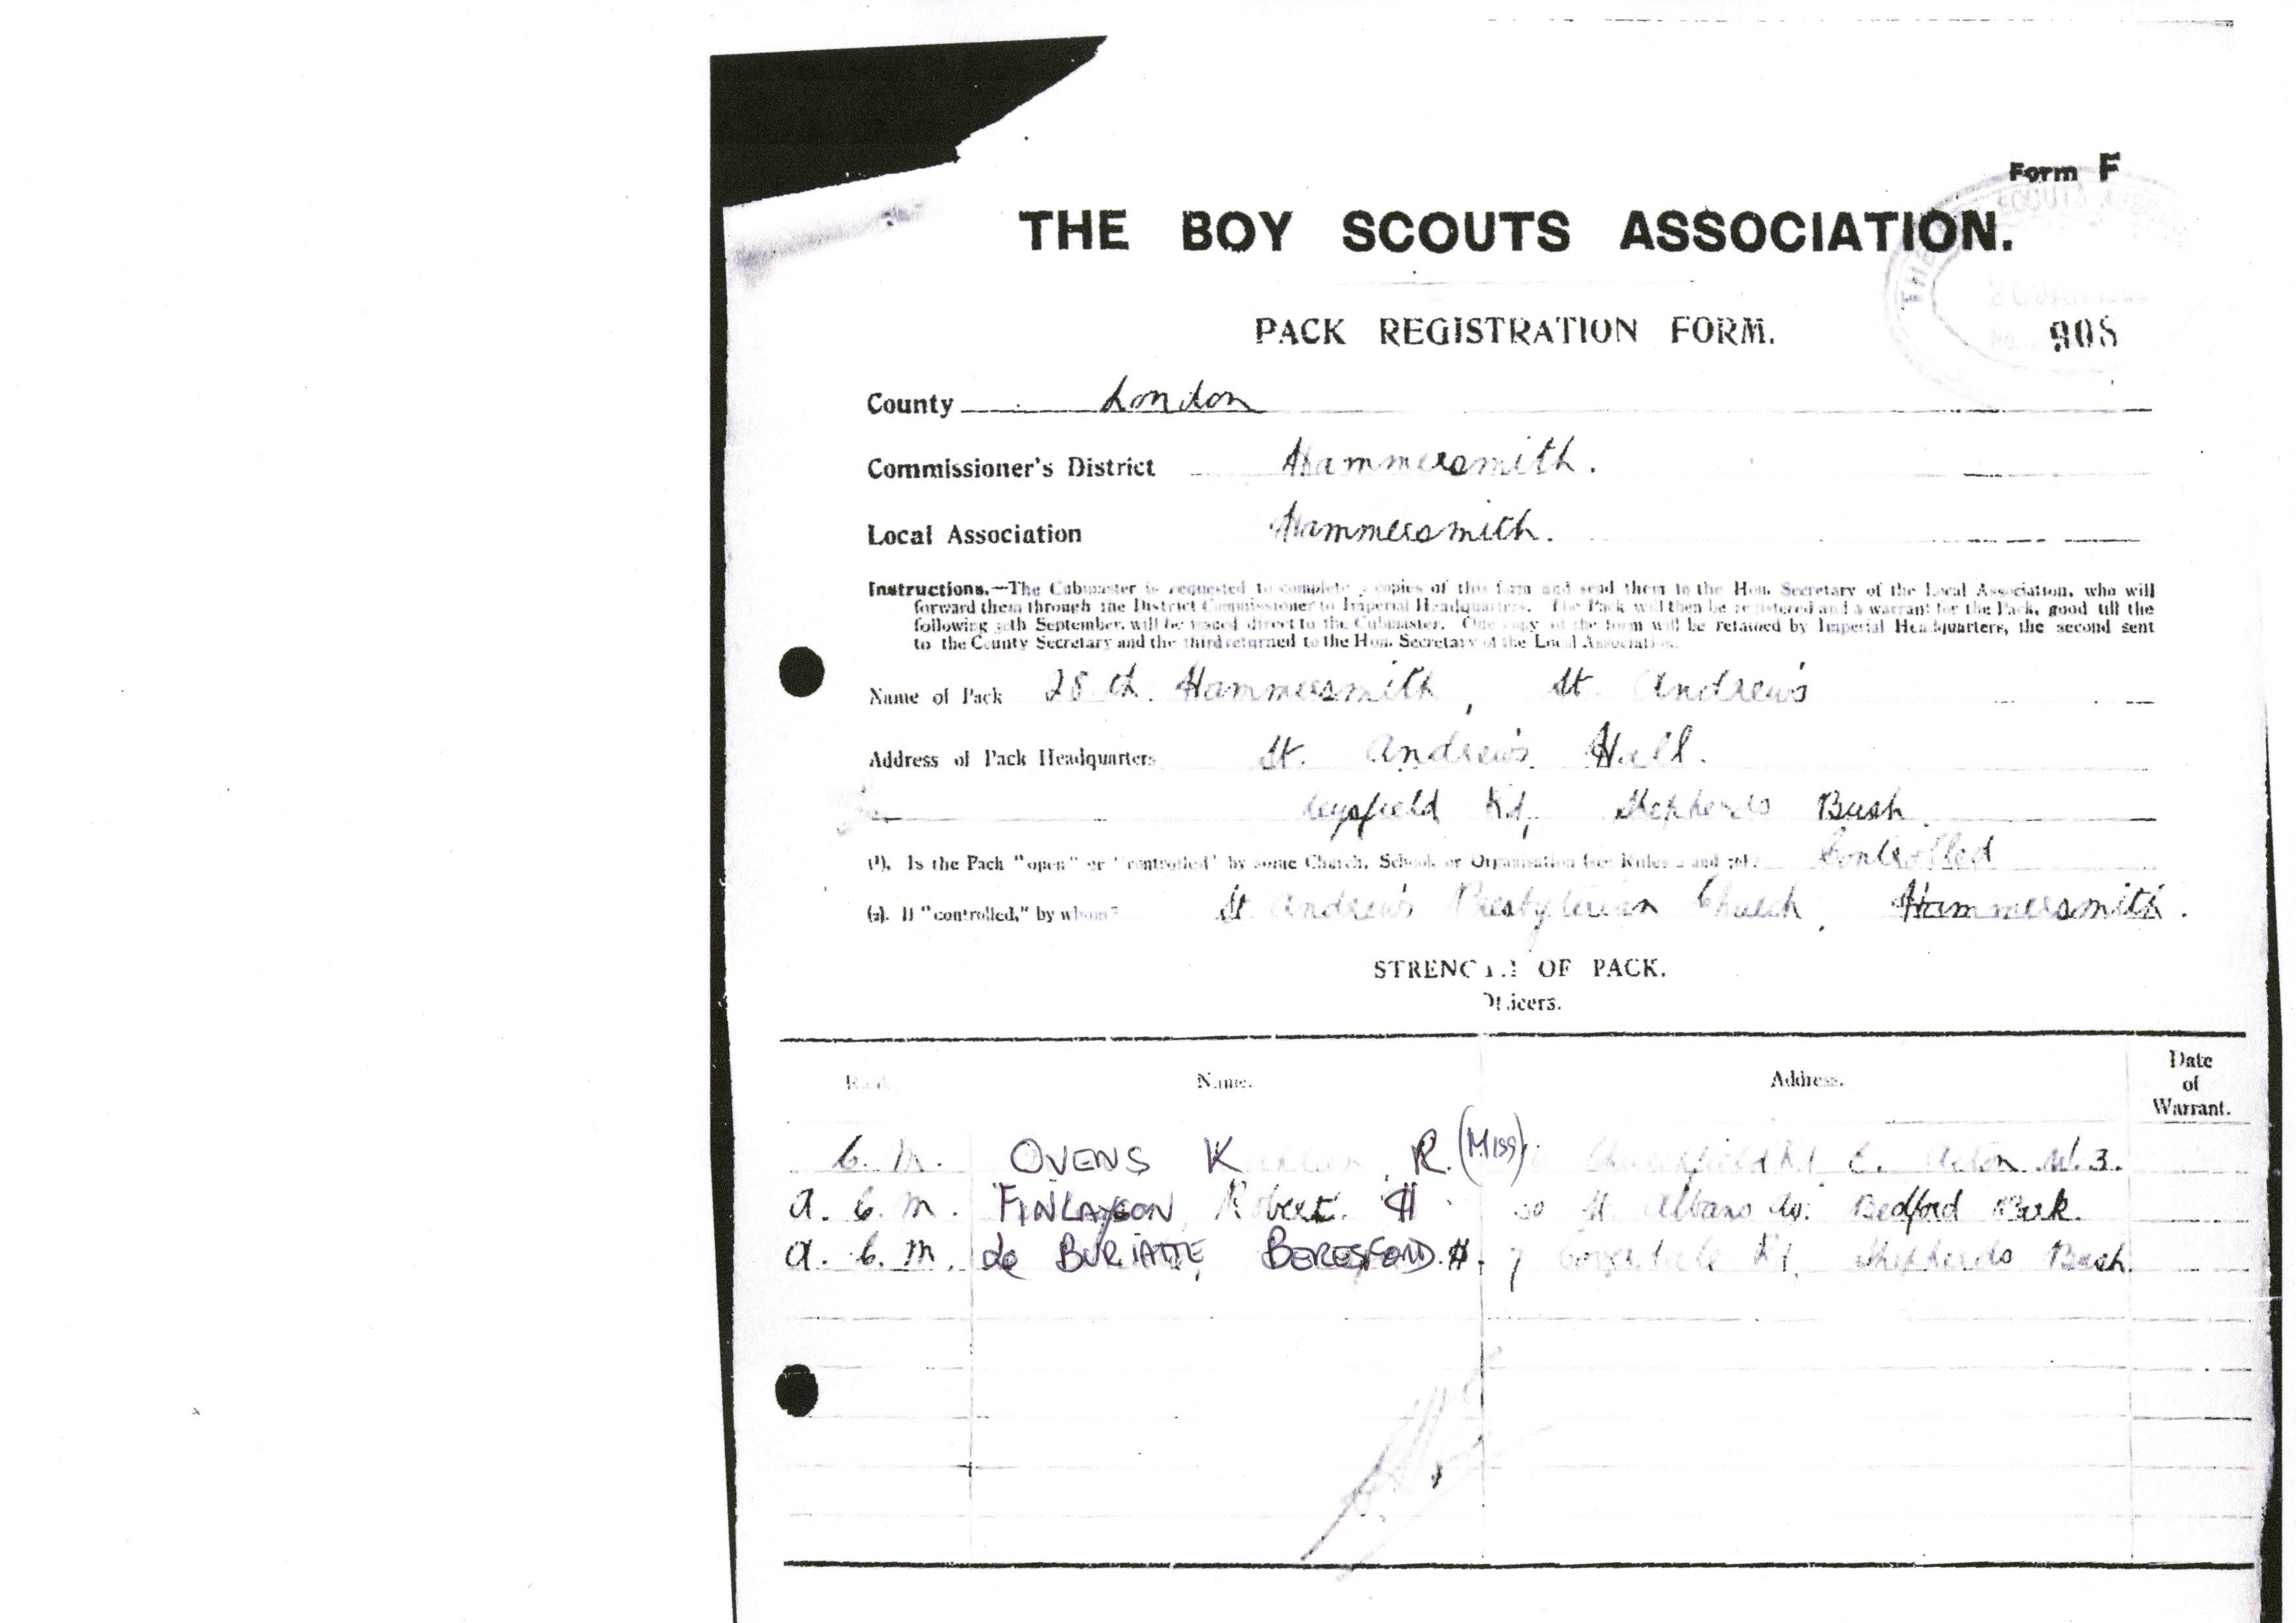 Form F
THE BOY SCOUTS ASSOCIATION.
PACK REGISTRATION FORM.
908
County London
Commissioner's District Hammersmith.
Local Association Hammersmith.
Instructions.—The Cubmaster is requested to complete copies of this form and send them to the Hon. Secretary of the Local Association, who will
forward them through the District Commissioner to Imperial Headquarters. The Pack will then be registered and a warrant for the Pack, good till the
following 30th September, will be issued direct to the Cubmaster. One copy of the form will be retained by Imperial Headquarters, the second sent
to the County Secretary and the third returned to the Hon. Secretary of the Local Association.
Name of Pack 28th. Hammersmith, St Andrew's
Address of Pack Headquarters St. Andrew's Hall.
Leysfield Rd, Shepherds Bush.
(1). Is the Pack "open" or "controlled" by some Church, School, or Organisation (see Rules 2 and). Controlled
(2). If "controlled," by whom? St Andrew's Presbyterian Church, Hammersmith.
STRENGTH OF PACK.
Officers.
Rank. Name. Address. Date of Warrant.
C. M. OVENS K R. (MISS) Churchfield Rd E. Acton W.3.
A. C. M. FINLAYSON Robert H St Albans Av. Bedford Park.
A. C. M. de BURIATTE, BERESFORD. H. 7 Rd. Shepherds Bush.